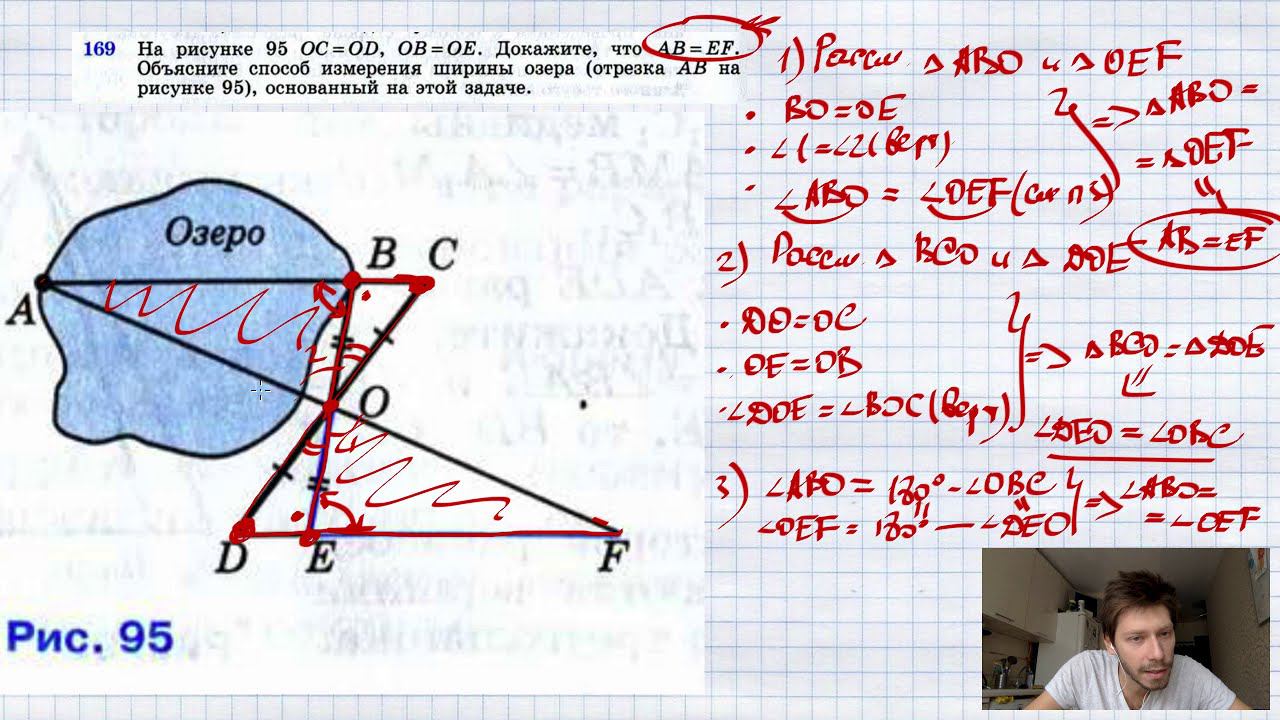 169 На рисунке 95 OC = OD, OB = OE. Докажите, что AB = EF.
Объясните способ измерения ширины озера (отрезка AB на
рисунке 95), основанный на этой задаче.
Озеро
A
B
C
O
D
E
F
1
2
Рис. 95
1) Рассм △ ABO и △ OEF
• BO = OE
• ∠1 = ∠2 (верт)
• ∠ABO = ∠OEF (см п 3)
=> △ABO =
= △OEF
AB = EF
2) Рассм △ BCO и △ DOE
• DO = OC
• OE = OB
• ∠DOE = ∠BOC (верт)
=> △BCO = △DOE
∠DEO = ∠OBC
3) ∠ABO = 180° - ∠OBC
∠OEF = 180° - ∠DEO
=> ∠ABO =
= ∠OEF